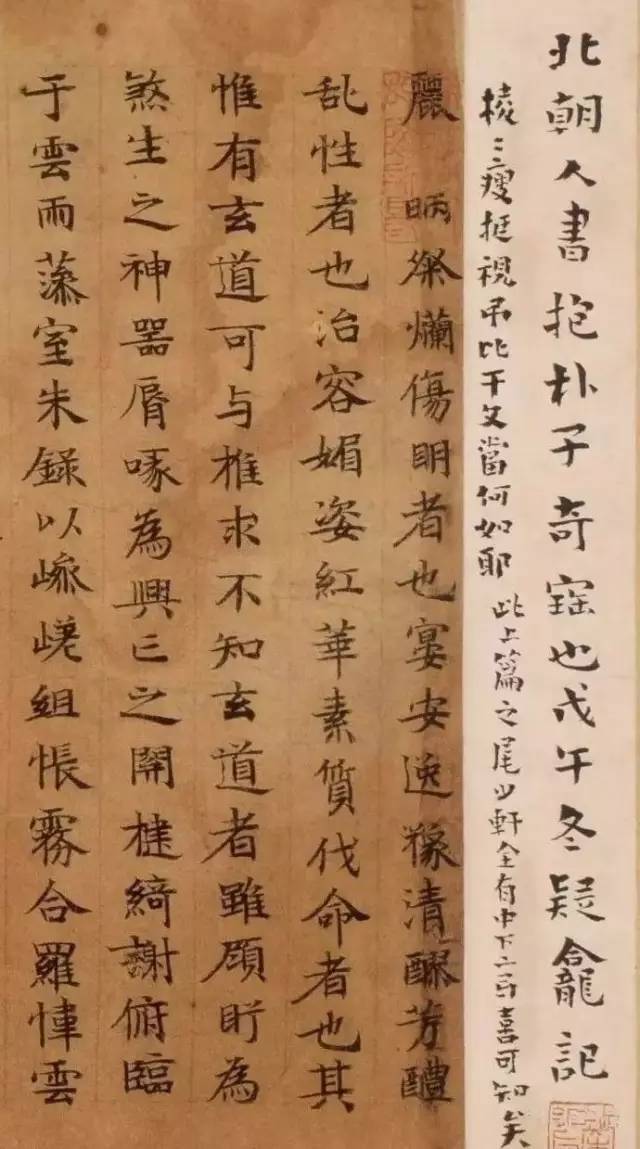 北朝人書抱朴子奇寚也戊午冬疑龕記
棱〻瘦挺視弔比干文當何如耶 此上篇之尾少軒全有中下二喜可知矣
麗 昞粲爛傷明者也宴安逸豫清醪芳醴
乱性者也治容媚姿紅華素質伐命者也其
惟有玄道可与推求不知玄道者雖顧眄為
煞生之神器脣喙為興亡之開楗綺榭俯臨
于雲雨藻室朱錄以嵾嵯組帳霧合羅幃雲